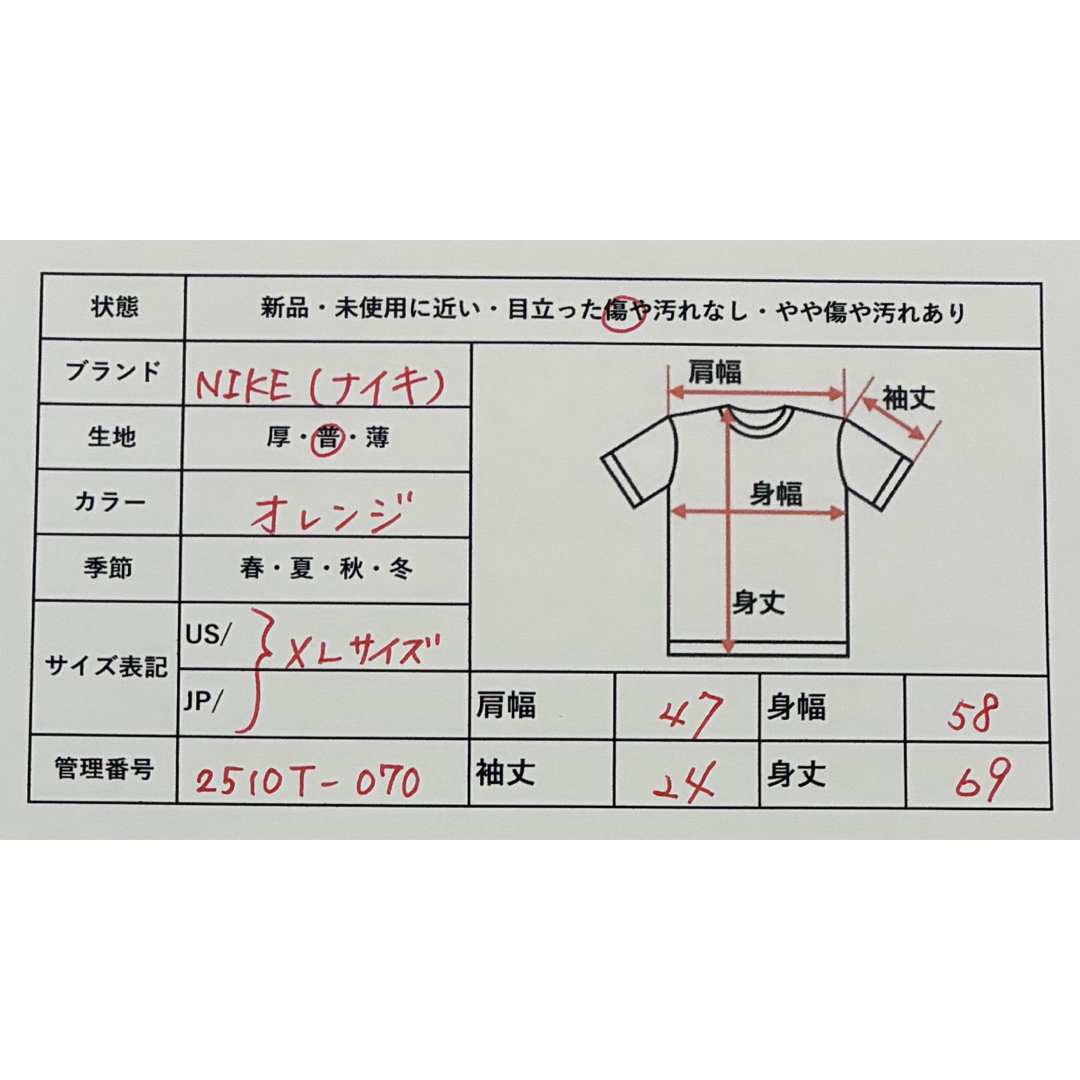 状態 新品・未使用に近い・目立った傷や汚れなし・やや傷や汚れあり
ブランド NIKE(ナイキ)
生地 厚・普・薄
カラー オレンジ
季節 春・夏・秋・冬
サイズ表記 US/ JP/ XLサイズ
管理番号 2510T-070
肩幅
袖丈
身幅
身丈
肩幅 47 身幅 58
袖丈 24 身丈 69